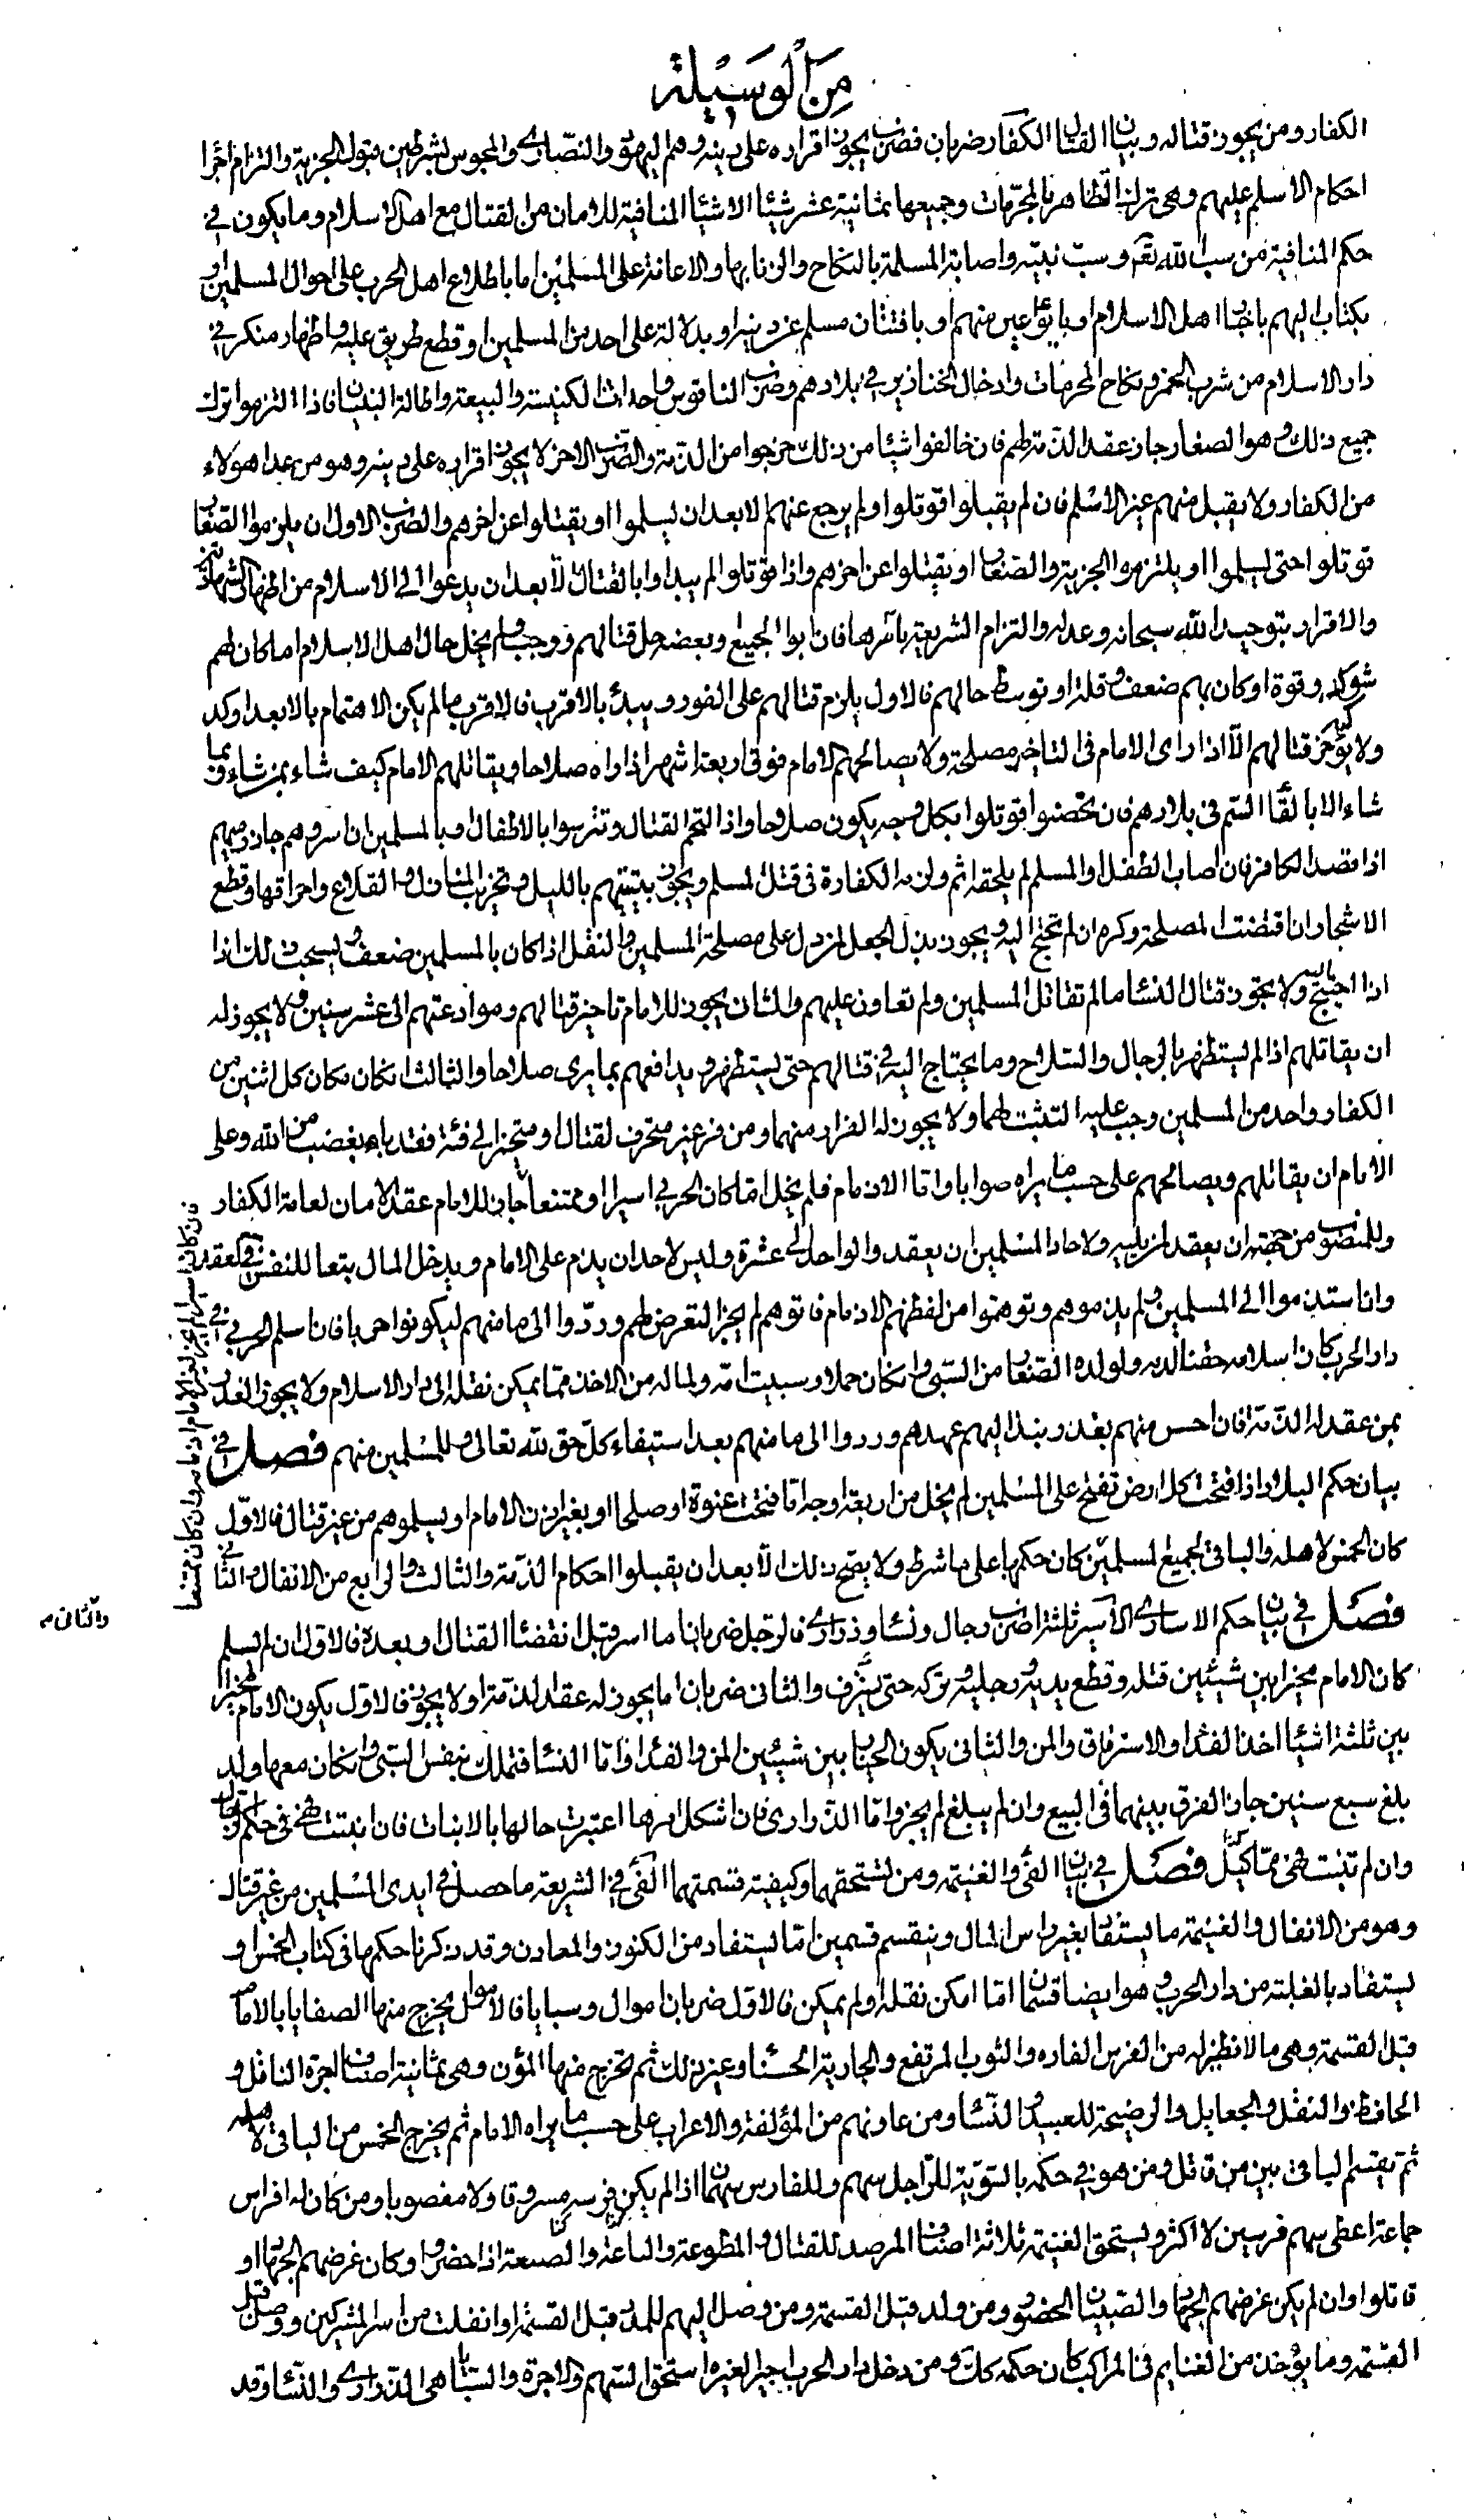 مِنَ الْوَسِيْلَة
الكفار ومن يجوز قتاله وبيان القتال الكفار ضربان فضرب يجوز اقراره على دينه وهم اليهود والنصارى والمجوس بشرطين قبول الجزية والتزام اجراء
احكام الاسلم عليهم وهي ترك التظاهر بالمحرمات وجميعها ثمانية عشر شيئا الاشياء المنافية للامان من القتال مع اهل الاسلام وما يكون في
حكم المنافية من سب الله تع وسب نبيه واصابة المسلمة بالنكاح والزنا بها والاعانة على المسلمين اما باطلاع اهل الحرب على احوال المسلمين او
بكتاب اليهم باخبار اهل الاسلام او بايواء عين منهم او بافتتان مسلم عن دينه او بدلالة على احد من المسلمين او قطع طريق عليه واظهار منكر في
دار الاسلام من شرب الخمر ونكاح المحرمات وادخال الخنازير في بلادهم وضرب الناقوس واحداث الكنيسة والبيعة واطالة البنيان فاذا التزموا ترك
جميع ذلك وهو الصغار جاز عقد الذمة لهم فان خالفوا شيئا من ذلك خرجوا من الذمة والضرب الاخر لا يجوز اقراره على دينه وهو من عدا هولاء
من الكفار ولا يقبل منهم غير الاسلم فان لم يقبلوا قوتلوا ولم يرجع عنهم الا بعد ان يسلموا او يقتلوا عن اخرهم والضرب الاول ان يلزموا الصغار
قوتلوا حتى يسلموا او يلتزموا الجزية والصغار او يقتلوا عن اخرهم واذا قوتلوا لم يبداوا بالقتال الا بعد ان يدعوا الى الاسلام من اظهار الشهادتين
والاقرار بتوحيد الله سبحانه وعدله والتزام الشريعة باسرها فان ابوا الجميع او بعضه حل قتالهم ووجب ولم يخل حال اهل الاسلام اما كان لهم
شوكة وقوة او كان بهم ضعف وقلة او توسط حالهم فالاول يلزم قتالهم على الفور ويبدئ بالاقرب فالاقرب ما لم يكن الاهتمام بالابعد اوكد
ولا يؤخر قتالهم الا اذا راى الامام في التاخير مصلحة ولا يصالحهم الامام فوق اربعة اشهر اذا راه صلاحا ويقاتلهم الامام كيف شاء بمن شاء وبما
شاء الا بالقاء السم في بلادهم فان تحصنوا قوتلوا بكل وجه يكون صلاحا واذا التحم القتال وتترسوا بالاطفال او بالمسلمين ان اسروهم جاز رميهم
اذا قصد الكافر فان اصاب الطفل او المسلم لم يلحقه اثم ولزمه الكفارة في قتل المسلم ويجوز تبييتهم بالليل وتخريب المنازل والقلاع واحراقها وقطع
الاشجار ان اقتضت المصلحة وكره ان لم تحتج اليه ويجوز بذل الجعل لمن دل على مصلحة المسلمين والنقل اذا كان بالمسلمين ضعف ويستحب ذلك اذا
اذا احتيج اليه ولا يجوز قتال النساء ما لم تقاتل المسلمين ولم تعاون عليهم والثاني يجوز للامام تاخير قتالهم وموادعتهم الى عشر سنين ولا يجوز له
ان يقاتلهم اذا لم يستظهر بالرجال والسلاح وما يحتاج اليه في قتالهم حتى يستظهر ويدافعهم بما يرى صلاحا والثالث كان مكان كل اثنين من
الكفار واحد من المسلمين وجب عليه التثبت لهما ولا يجوز له الفرار منهما ومن فر غير متحرف لقتال او متحيز الى فئة فقد باء بغضب من الله وعلى
الامام ان يقاتلهم ويصالحهم على حسب ما يراه صوابا واما الاذمام فلم يخل اما كان الحربي اسيرا او ممتنعا جاز للامام عقد الامان لعامة الكفار
وللمنصوب من جهته ان يعقد لمن يليه ولاحاد المسلمين ان يعقد والواحد الى عشرة وليس لاحد ان يذم على الامام ويدخل المال تبعا للنفس في العقد
وان استذموا الى المسلمين ولم يذموهم وتوهموا من لفظهم الاذمام فاتوهم لم يجز التعرض لهم وردوا الى مامنهم ليكونوا حربا فان اسلم الحربي في
دار الحرب كان اسلامه حقنا لدمه ولولده الصغار من السبي وان كان حملا وسبيت امه ولماله من الاخذ مما يمكن نقله الى دار الاسلام ولا يجوز الغدر
بمن عقد له الذمة فان احس منهم بغدر نبذ اليهم عهدهم وردوا الى مامنهم بعد استيفاء كل حق لله تعالى وللمسلمين منهم فصل في
بيان حكم البلاد اذا فتحت كل ارض تفتح على المسلمين لم يخل من اربعة اوجه اما فتحت عنوة او صلحا او بغير اذن الامام او يسلموهم من غير قتال فالاول
كان الخمس لاهله والباقي لجميع المسلمين كان حكمها على ما شرط ولا يصح ذلك الا بعد ان يقبلوا احكام الذمة والثالث والرابع من الانفال والثاني
والثاني
فصل في بيان حكم الاسارى الاسير ثلثة اضرب رجال ونساء وذرارى فالرجل ضربان ما اسر قبل انقضاء القتال او بعده فالاول ان لم يسلم
كان الامام مخيرا بين شيئين قتله وقطع يديه ورجليه وتركه حتى ينزف والثاني ضربان اما يجوز له عقد الذمة او لا يجوز فالاول يكون الامام مخيرا
بين ثلثة اشياء اخذ الفداء والاسترقاق والمن والثاني يكون الخيار بين شيئين المن والفداء واما النساء فتملك بنفس السبي وان كان معها ولد
بلغ سبع سنين جاز الفرق بينهما في البيع وان لم يبلغ لم يجز واما الذراري فان اشكل امرها اعتبرت حالها بالانبات فان انبتت فهي في حكم الرجال
وان لم تنبت فهي مماليك فصل في بيان الفئ والغنيمة ومن تستحقهما وكيفية قسمتهما الفئ في الشريعة ما حصل في ايدى المسلمين من غير قتال
وهو من الانفال والغنيمة ما يستفاد بغير راس المال وينقسم قسمين اما يستفاد من الكنوز والمعادن وقد ذكرنا حكمها في كتاب الخمس او
يستفاد بالغلبة من دار الحرب وهو ايضا قسمان اما امكن نقله او لم يمكن فالاول ضربان اموال وسبايا فالاموال يخرج منها الصفايا بالامام
قبل القسمة وهي ما لا نظير له من الفرس الفاره والثوب المرتفع والجارية الحسناء وغير ذلك ثم تخرج منها المؤن وهي ثمانية اصناف اجرة الناقل و
الحافظ والنفل والجعايل والرضيخة للعبيد والنساء ومن عاونهم من المؤلفة والاعراب على حسب ما يراه الامام ثم يخرج الخمس من الباقي لاهله
ثم يقسم الباقي بين من قاتل ومن هو في حكمه بالسوية للراجل سهم وللفارس سهمان اذا لم يكن فرسه مسروقا ولا مغصوبا ومن كان له افراس
جماعة اعطى سهم فرسين لا اكثر ويستحق الغنيمة ثلاثة اصناف المرصد للقتال والمطوعة والباعة والصنعة اذا حضروا وكان غرضهم الجهاد او
قاتلوا وان لم يكن غرضهم الجهاد والصبيان الحضور ومن ولد قبل القسمة ومن وصل اليهم للمدد قبل القسمة او انفلت من اسر المشركين ووصل قبل
القسمة وما يؤخذ من الغنايم في المراكب كان حكمه كك ومن دخل دار الحرب اجيرا لغيره استحق السهم والاجرة والسبايا هي الذرارى والنساء وقد